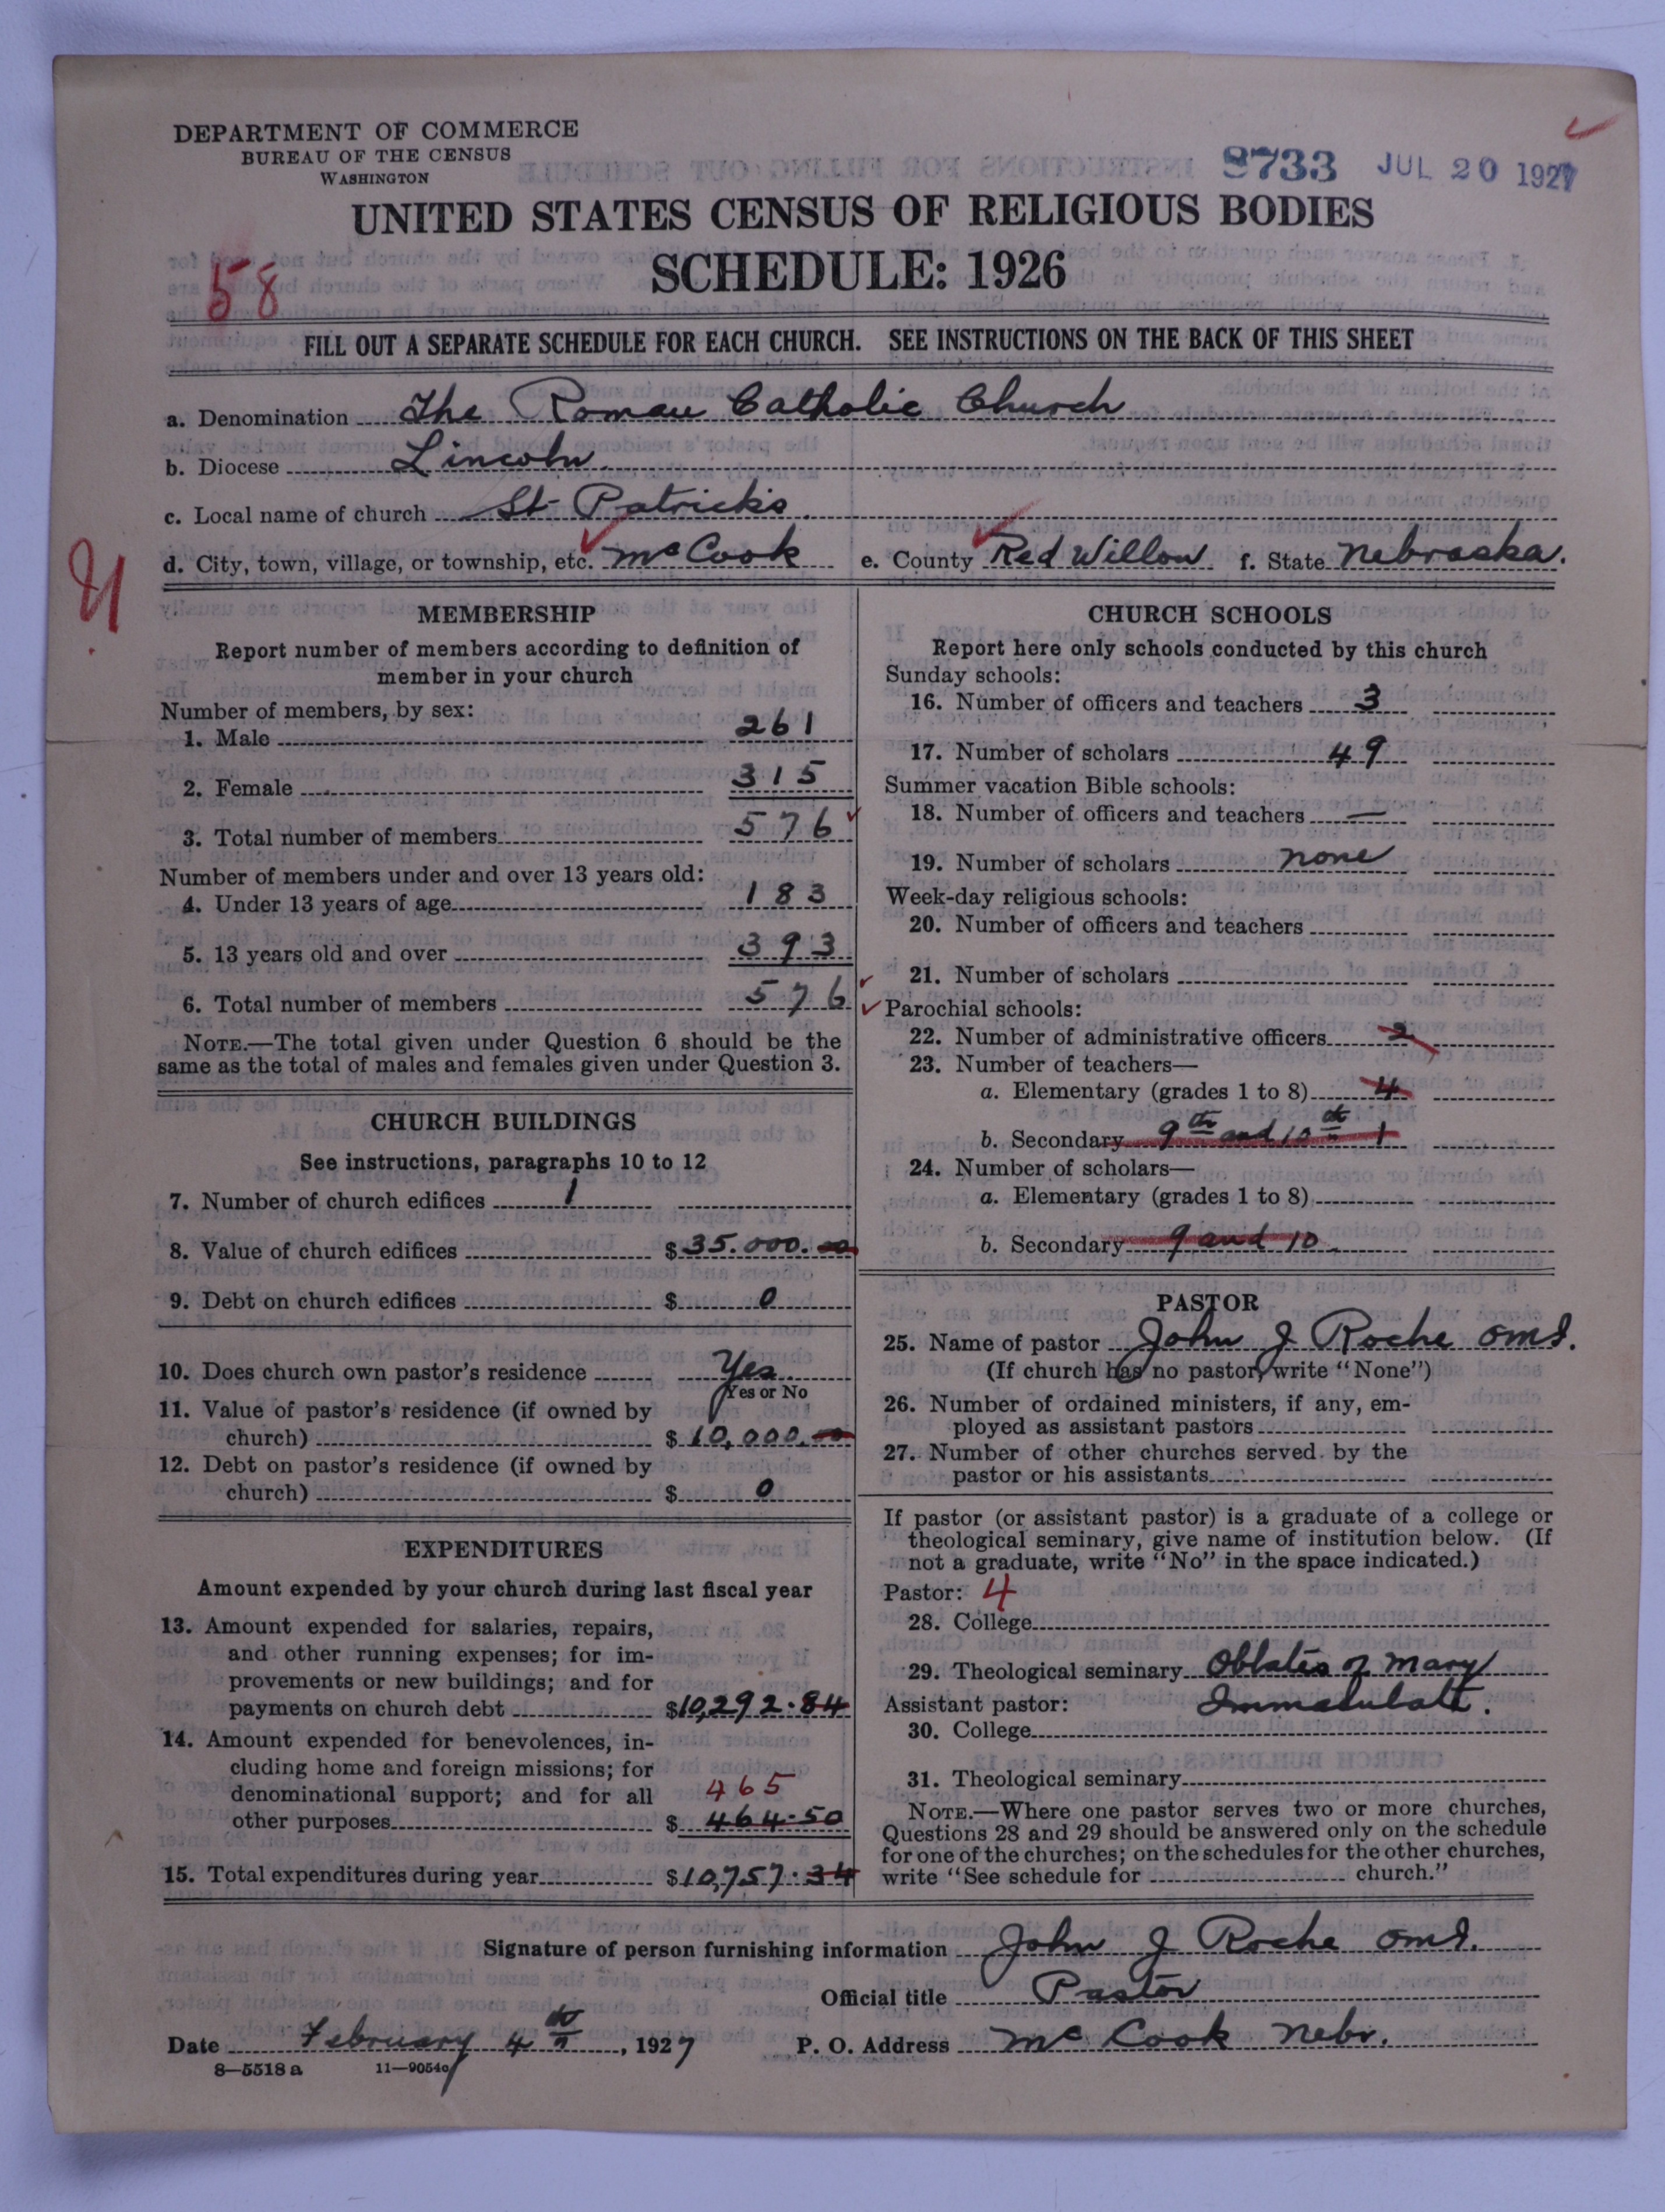 DEPARTMENT OF COMMERCE
BUREAU OF THE CENSUS
WASHINGTON
8733 JUL 20 1927
UNITED STATES CENSUS OF RELIGIOUS BODIES
SCHEDULE: 1926
58
FILL OUT A SEPARATE SCHEDULE FOR EACH CHURCH. SEE INSTRUCTIONS ON THE BACK OF THIS SHEET
a. Denomination The Roman Catholic Church
b. Diocese Lincoln
c. Local name of church St Patrick's
d. City, town, village, or township, etc. McCook e. County Red Willow f. State Nebraska.
MEMBERSHIP
Report number of members according to definition of
member in your church
Number of members, by sex:
1. Male 261
2. Female 315
3. Total number of members 576
Number of members under and over 13 years old:
4. Under 13 years of age 183
5. 13 years old and over 393
6. Total number of members 576
NOTE.—The total given under Question 6 should be the
same as the total of males and females given under Question 3.
CHURCH BUILDINGS
See instructions, paragraphs 10 to 12
7. Number of church edifices 1
8. Value of church edifices $35.000.00
9. Debt on church edifices $ 0
10. Does church own pastor's residence Yes
Yes or No
11. Value of pastor's residence (if owned by
church) $10,000.00
12. Debt on pastor's residence (if owned by
church) $ 0
EXPENDITURES
Amount expended by your church during last fiscal year
13. Amount expended for salaries, repairs,
and other running expenses; for im-
provements or new buildings; and for
payments on church debt $10,292.84
14. Amount expended for benevolences, in-
cluding home and foreign missions; for
denominational support; and for all 465
other purposes $ 464.50
15. Total expenditures during year $10,757.34
CHURCH SCHOOLS
Report here only schools conducted by this church
Sunday schools:
16. Number of officers and teachers 3
17. Number of scholars 49
Summer vacation Bible schools:
18. Number of officers and teachers —
19. Number of scholars none
Week-day religious schools:
20. Number of officers and teachers
21. Number of scholars
Parochial schools:
22. Number of administrative officers 2
23. Number of teachers—
a. Elementary (grades 1 to 8) 4
b. Secondary 9th and 10th 1
24. Number of scholars—
a. Elementary (grades 1 to 8)
b. Secondary 9 and 10
PASTOR
25. Name of pastor John J Roche OMI.
(If church has no pastor, write "None")
26. Number of ordained ministers, if any, em-
ployed as assistant pastors
27. Number of other churches served by the
pastor or his assistants
If pastor (or assistant pastor) is a graduate of a college or
theological seminary, give name of institution below. (If
not a graduate, write "No" in the space indicated.)
Pastor: 4
28. College
29. Theological seminary Oblates of Mary
Assistant pastor: Immaculate.
30. College
31. Theological seminary
NOTE.—Where one pastor serves two or more churches,
Questions 28 and 29 should be answered only on the schedule
for one of the churches; on the schedules for the other churches,
write "See schedule for church."
Signature of person furnishing information John J Roche OMI.
Official title Pastor
Date February 4th, 1927 P. O. Address McCook Nebr.
8—5518 a 11—9054